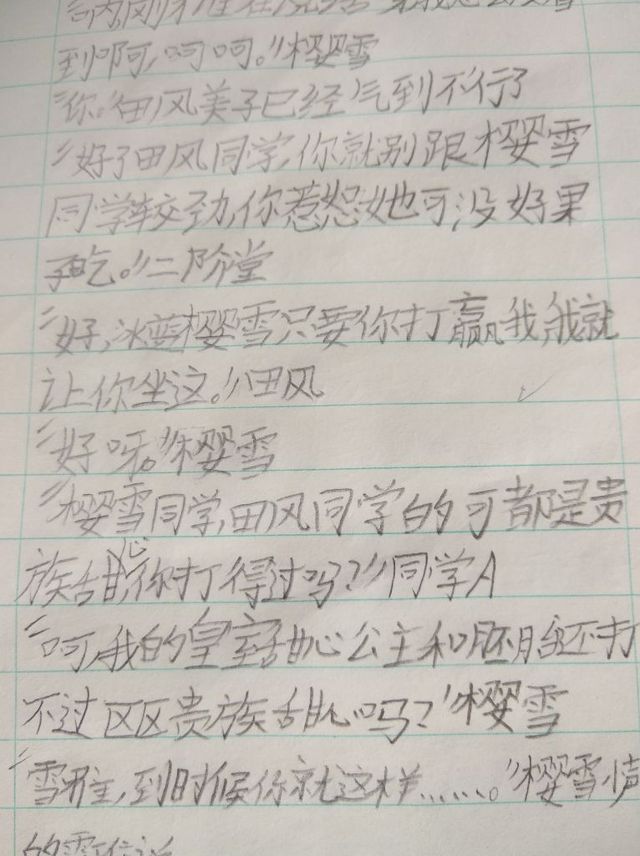 到啊,呵呵。”樱雪
“你。”田风美子已经气到不行了
“好了田风同学,你就别跟樱雪
同学较劲,你惹怒她可没好果
子吃。”二阶堂
“好,冰蓝樱雪只要你打赢我,我就
让你坐这。”田风
“好呀。”樱雪
“樱雪同学,田风同学的可都是贵
族甜心你打得过吗?”同学A
“呵,我的皇室甜心公主和胚胎还打
不过区区贵族甜心吗?”樱雪
“雪雅,到时候你就这样……。”樱雪小声
的